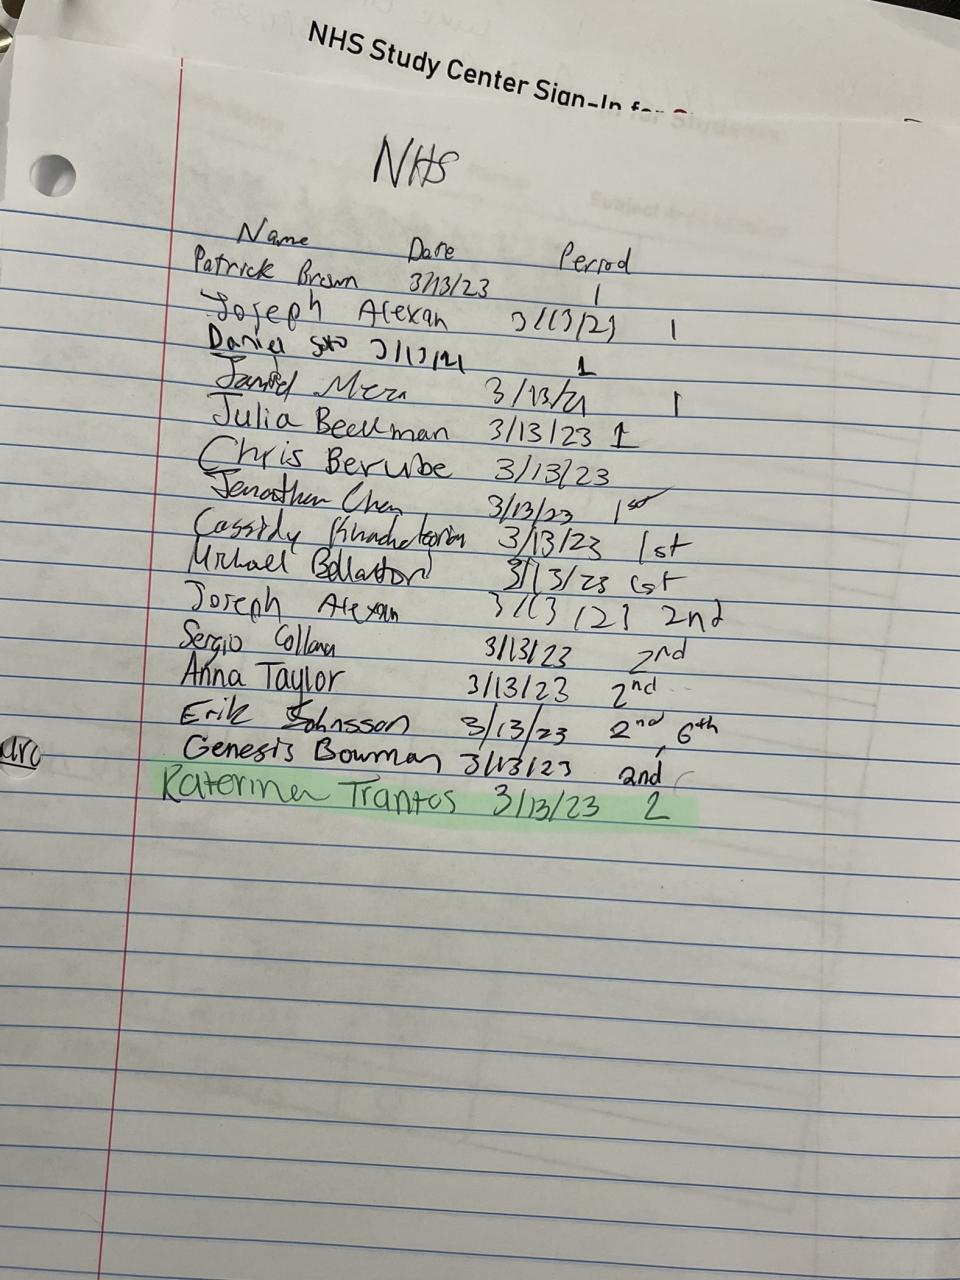 NHS Study Center Sign-In for
NHS
Name Date Period
Patrick Brown 3/13/23 1
Joseph Alexan 3/13/23 1
Daniel Soto 3/13/21 1
3/13/21 1
Julia Beckman 3/13/23 1
Chris Berube 3/13/23
Jonathan Chen 3/13/23 1st
Cassidy 3/13/23 1st
Michael 3/13/23 1st
Joseph Alexan 3/13/23 2nd
Sergio 3/13/23 2nd
Anna Taylor 3/13/23 2nd
Erik Johnsson 3/13/23 2nd, 6th
Genesis Bowman 3/13/23 2nd
Katerina Trantos 3/13/23 2